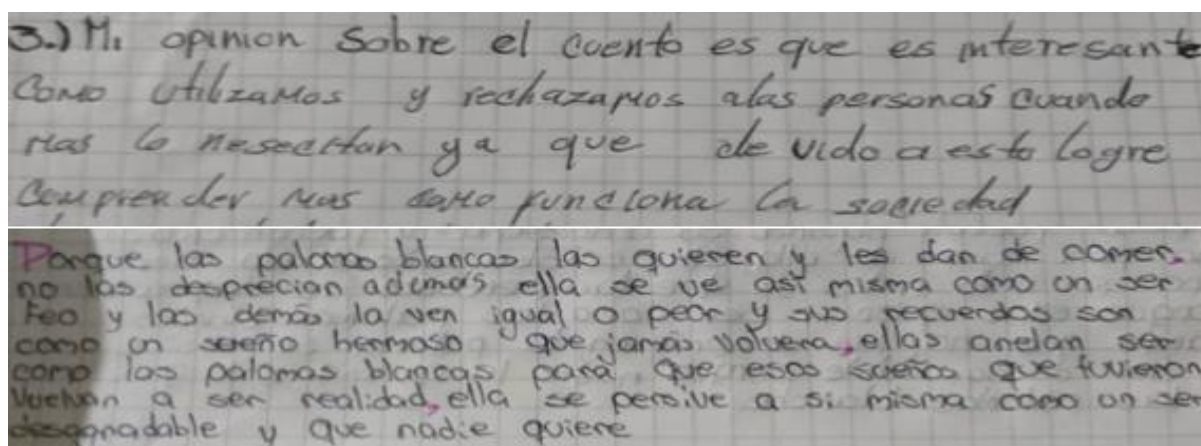 3.) Mi opinion sobre el cuento es que es interesante
como utilizamos y rechazamos alas personas cuando
mas lo nesecitan ya que de vido a esto logre
comprender mas como funciona la sociedad
Porque las palomas blancas las quieren y les dan de comer.
no las desprecian además ella se ve así misma como un ser
Feo y las demás la ven igual o peor y sus recuerdos son
como un sueño hermoso que jamás volvera, ellas anelan ser
como las palomas blancas para que esos sueños que tuvieron
vuelvan a ser realidad, ella se persive a si misma como un ser
desagradable y que nadie quiere